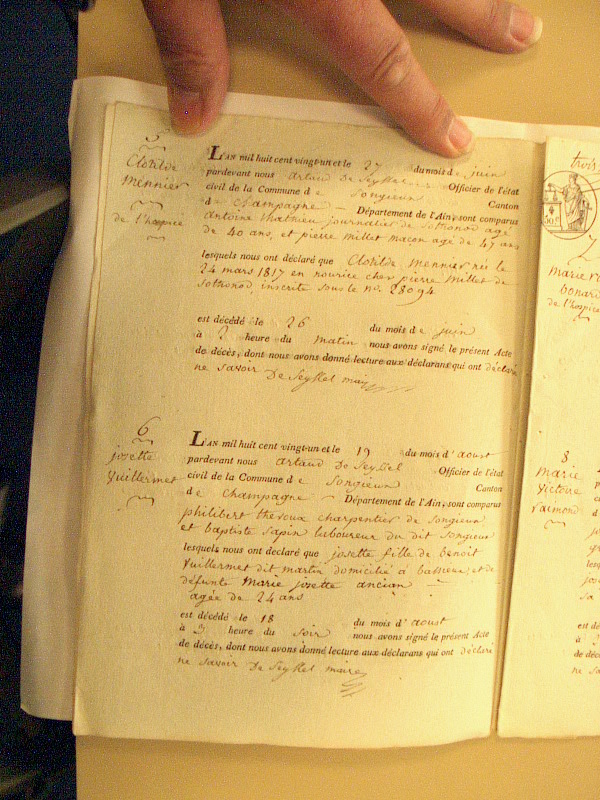 5
Clotilde
Mennier
de l'hospice
L'AN mil huit cent vingt-un et le 27 du mois de juin
pardevant nous artaud De Seyssel Officier de l'état
civil de la Commune de Songieux Canton
de Champagne — Département de l'Ain, sont comparus
antoine Mathieu journalier de Sothonod agé
de 40 ans, et pierre Millet macon age de 47 ans
lesquels nous ont déclaré que Clotilde Mennier née le
24 mars 1817 en nourice chez pierre Millet de
Sothonod, inscrite sous le no. 28094
est décédé le 26 du mois de juin
à 3 heure du matin nous avons signé le présent Acte
de décès, dont nous avons donné lecture aux déclarans qui ont déclaré
ne savoir De Seyssel maire
6
josette
Guillermet
L'AN mil huit cent vingt-un et le 19 du mois d'aoust
pardevant nous artaud De Seyssel Officier de l'état
civil de la Commune de Songieux Canton
de Champagne — Département de l'Ain, sont comparus
philibert theroux charpentier de Songieux
et baptiste Sapin laboureur du dit Songieux
lesquels nous ont déclaré que josette fille de benoit
Guillermet dit martin domicilié à et de
défunte Marie josette ancian
agée de 24 ans
est décédé le 18 du mois d'aoust
à 3 heure du soir nous avons signé le présent Acte
de décès, dont nous avons donné lecture aux déclarans qui ont déclaré
ne savoir De Seyssel maire
trois
7
marie
bonard
de l'hospice
8
marie
victoire